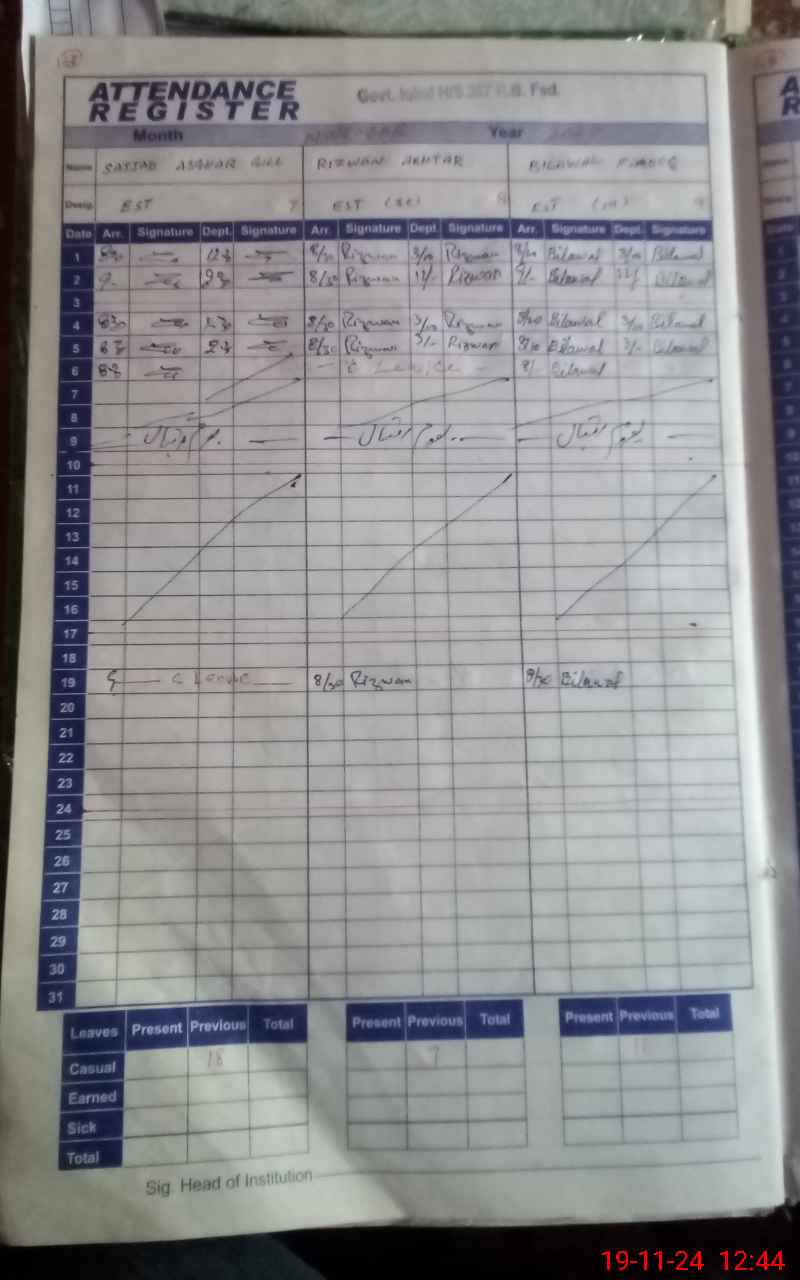 ATTENDANCE
REGISTER
Govt. H/S 267 R.B. Fsd.
Month Year
Name SAJJAD ASGHAR GILL RIZWAN AKHTAR BILAWAL
Desig. EST EST EST
Date Arr. Signature Dept. Signature Arr. Signature Dept. Signature Arr. Signature Dept. Signature
1 8/30 Rizwan 3/10 Rizwan Bilawal 3/10 Bilawal
2 9- 8/30 Rizwan 12/- Rizwan 9/- Bilawal Bilawal
3
4 830 8/30 Rizwan 3/10 Rizwan 8/30 Bilawal 3/10 Bilawal
5 8/30 Rizwan 3/- Rizwan 8/30 Bilawal 3/- Bilawal
6 C Leave 8/- Bilawal
7
8
9 یوم اقبال یوم اقبال یوم اقبال
10
11
12
13
14
15
16
17
18
19 C Leave 8/30 Rizwan 8/30 Bilawal
20
21
22
23
24
25
26
27
28
29
30
31
Leaves Present Previous Total Present Previous Total Present Previous Total
Casual 18 7
Earned
Sick
Total
Sig. Head of Institution
19-11-24 12:44